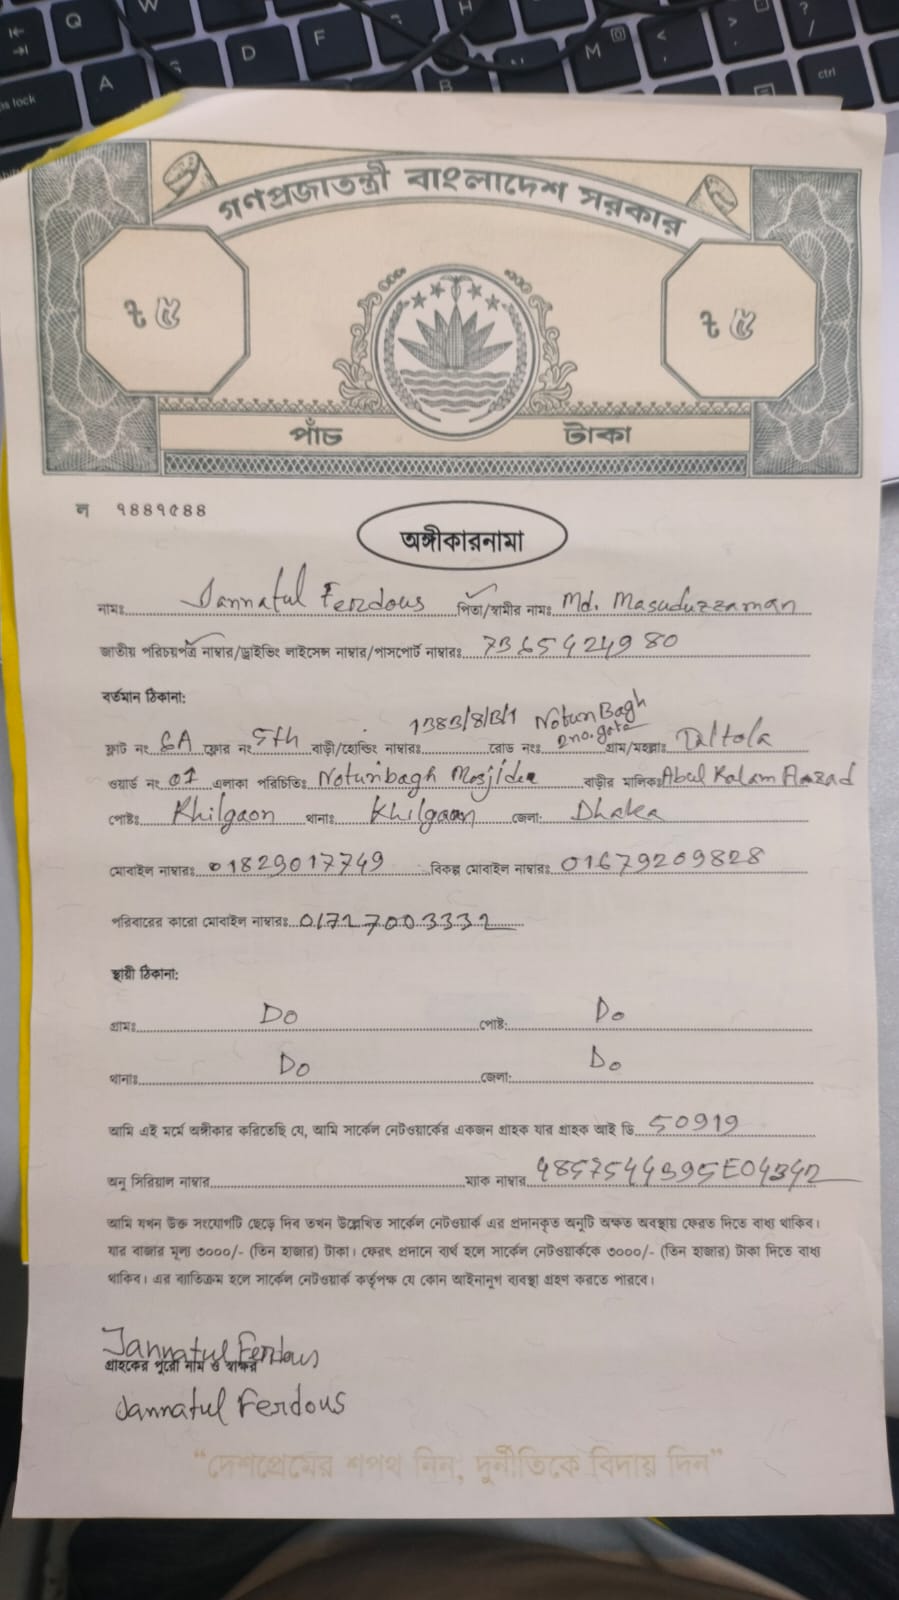 গণপ্রজাতন্ত্রী বাংলাদেশ সরকার
৳ ৫ ৳ ৫
পাঁচ টাকা
ল ৭৪৪৭৫৪৪
অঙ্গীকারনামা
নামঃ Jannatul Ferdous পিতা/স্বামীর নামঃ Md. Masuduzzaman
জাতীয় পরিচয়পত্র নাম্বার/ড্রাইভিং লাইসেন্স নাম্বার/পাসপোর্ট নাম্বারঃ 7365424980
বর্তমান ঠিকানা:
1383/8/B/1 Notun Bagh
ফ্লাট নং 6A ফ্লোর নং 5th বাড়ী/হোল্ডিং নাম্বারঃ রোড নংঃ 2no. gate গ্রাম/মহল্লাঃ Taltola
ওয়ার্ড নং 01 এলাকা পরিচিতিঃ Notunbagh বাড়ীর মালিকঃ Abul Kalam Aazad
পোষ্টঃ Khilgaon থানাঃ Khilgaon জেলা: Dhaka
মোবাইল নাম্বারঃ 01829017749 বিকল্প মোবাইল নাম্বারঃ 01679209828
পরিবারের কারো মোবাইল নাম্বারঃ 01727003332
স্থায়ী ঠিকানা:
গ্রামঃ Do পোষ্ট: Do
থানাঃ Do জেলা: Do
আমি এই মর্মে অঙ্গীকার করিতেছি যে, আমি সার্কেল নেটওয়ার্কের একজন গ্রাহক যার গ্রাহক আই ডি 50919
অনু সিরিয়াল নাম্বার ম্যাক নাম্বার 4857544395E04342
আমি যখন উক্ত সংযোগটি ছেড়ে দিব তখন উল্লেখিত সার্কেল নেটওয়ার্ক এর প্রদানকৃত অনুটি অক্ষত অবস্থায় ফেরত দিতে বাধ্য থাকিব।
যার বাজার মূল্য ৩০০০/- (তিন হাজার) টাকা। ফেরৎ প্রদানে ব্যর্থ হলে সার্কেল নেটওয়ার্ককে ৩০০০/- (তিন হাজার) টাকা দিতে বাধ্য
থাকিব। এর ব্যতিক্রম হলে সার্কেল নেটওয়ার্ক কর্তৃপক্ষ যে কোন আইনানুগ ব্যবস্থা গ্রহণ করতে পারবে।
Jannatul Ferdous
গ্রাহকের পুরো নাম ও স্বাক্ষর
Jannatul Ferdous
“দেশপ্রেমের শপথ নিন, দুর্নীতিকে বিদায় দিন”